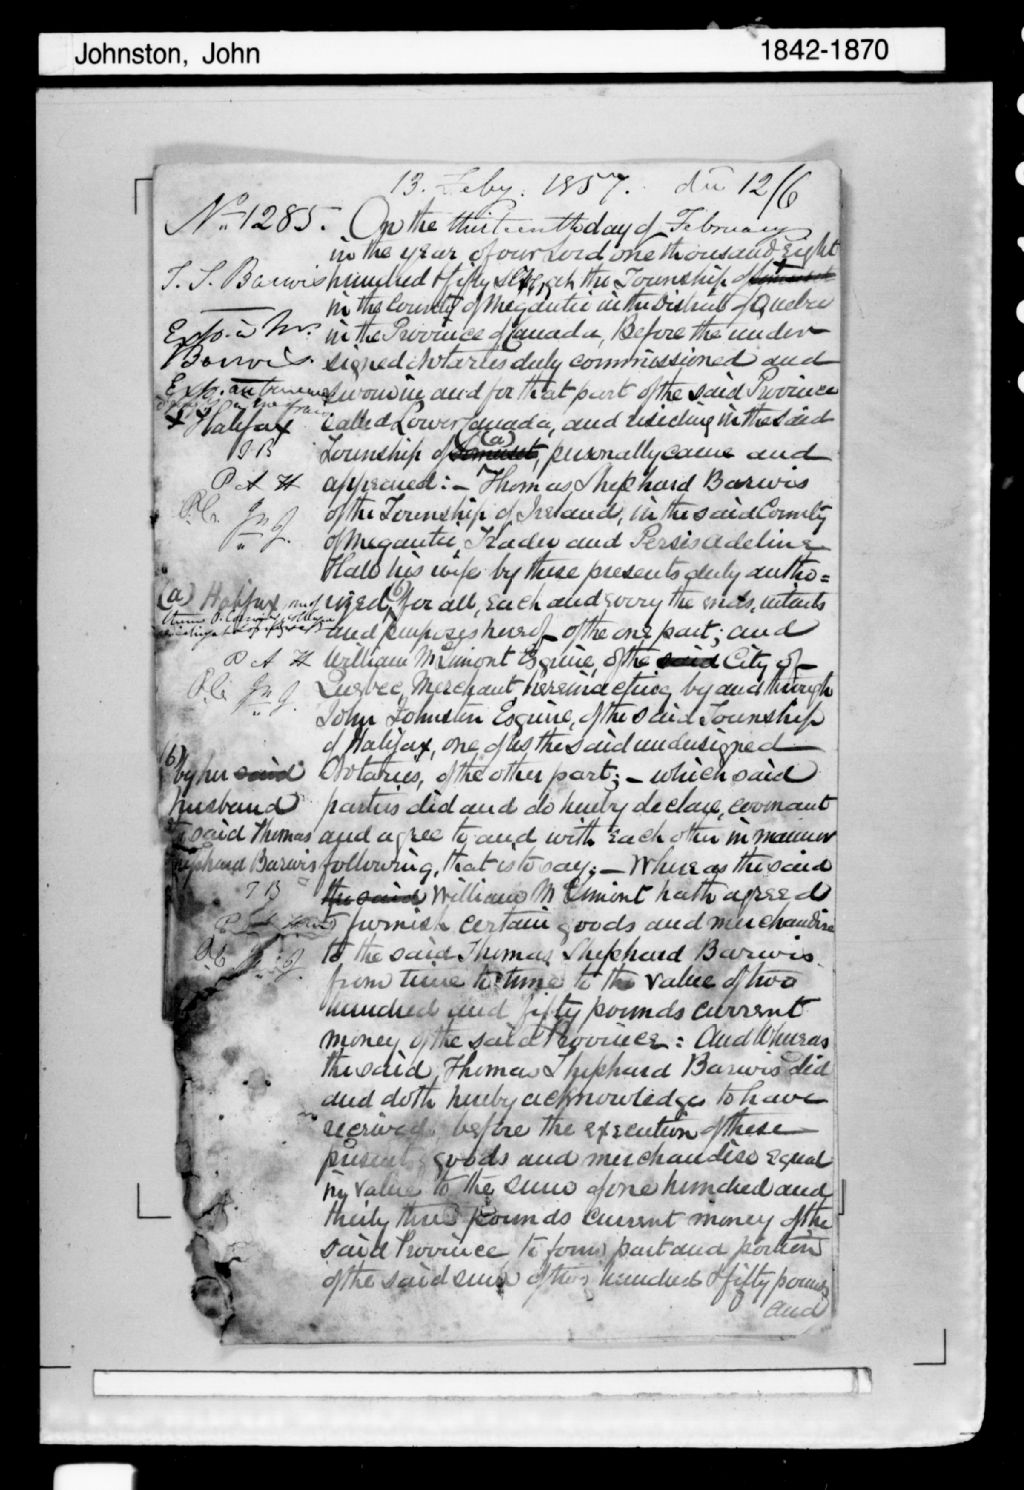 Johnston, John 1842-1870
13. Feby. 1857. du 12/6
No. 1285. On the thirteenth day of February
in the year of our Lord one thousand eight
T. S. Barwis hundred & fifty seven, at the Township of
in the County of Megantic in the District of Quebec
in the Province of Canada, Before the under-
Barwis. signed Notaries duly commissioned and
sworn in and for that part of the said Province
called Lower Canada, and residing in the said
x Halifax
(a)
Township of Somerset, personally came and
P A H appeared:- Thomas Shephard Barwis
of the Township of Ireland, in the said County
of Megantic, Trader and Persis Adeline
Hale his wife by these presents duly autho=
(a) Halifax and rized, for all, each and every the ends, intents
and purposes hereof of the one part; and
P A H William McLimont Esquire, of the said City of
Quebec, Merchant, herein acting by and through
John Johnston Esquire, of the said Township
of Halifax, one of us the said undersigned
(b) by her said Notaries, of the other part;- which said
husband parties did and do hereby declare, covenant
said Thomas and agree to and with each other in manner
Shephard Barwis following, that is to say:- Whereas the said
T B the said William McLimont hath agreed
to furnish certain goods and merchandise
to the said Thomas Shephard Barwis
from time to time to the value of two
hundred and fifty pounds current
money of the said Province: And Whereas
the said Thomas Shephard Barwis did
and doth hereby acknowledge to have
received before the execution of these
presents goods and merchandise equal
in value to the sum of one hundred and
thirty three pounds current money of the
said Province to form part and portion
of the said sum of two hundred & fifty pounds
and